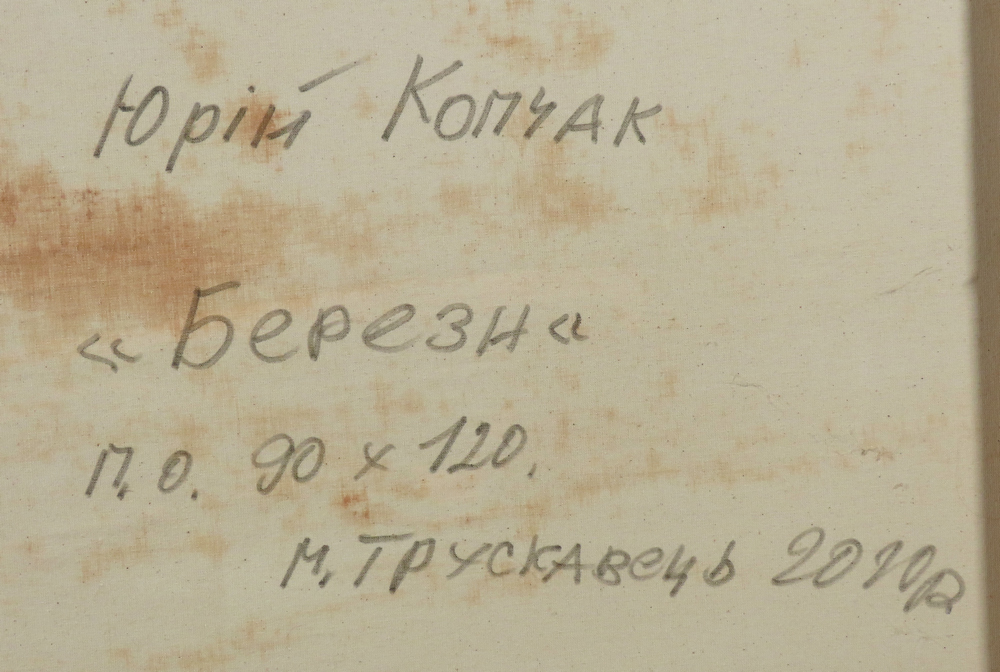 Юрій Копчак
«Берези«
П.О. 90 х 120.
м. Трускавець 2010р